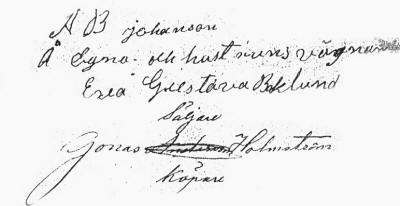 A B johanson
Å Egna och hustruns vägnar
Eva Gustava Beklund
Säljare
Jonas Holmström
Köpare